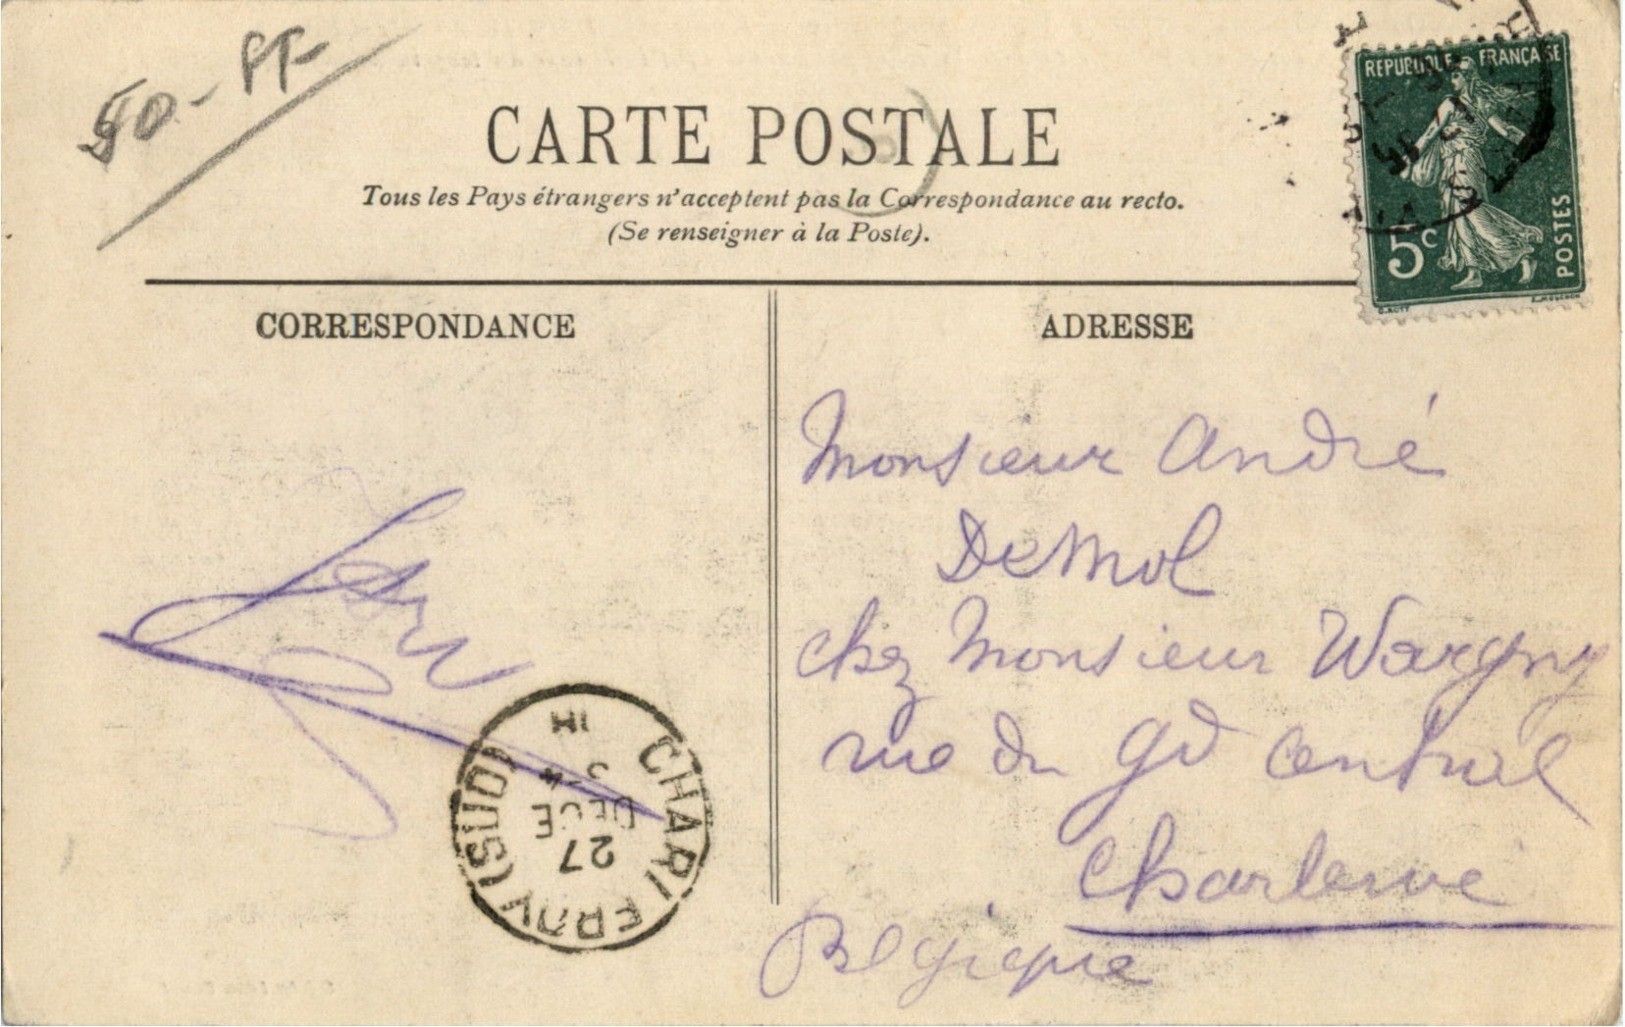 50 - FF-
CARTE POSTALE
Tous les Pays étrangers n'acceptent pas la Correspondance au recto.
(Se renseigner à la Poste).
REPUBLIQUE FRANÇAISE
5c
POSTES
CORRESPONDANCE
ADRESSE
Monsieur André
DeMol
chez Monsieur Wargny
rue du Gd Central
Belgique
CHARLEROY (SUD)
27
DECE